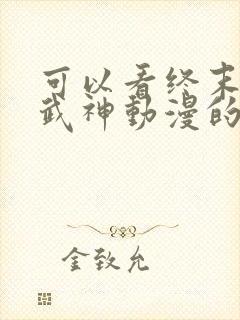 可以看终末
武神動漫的
金致允